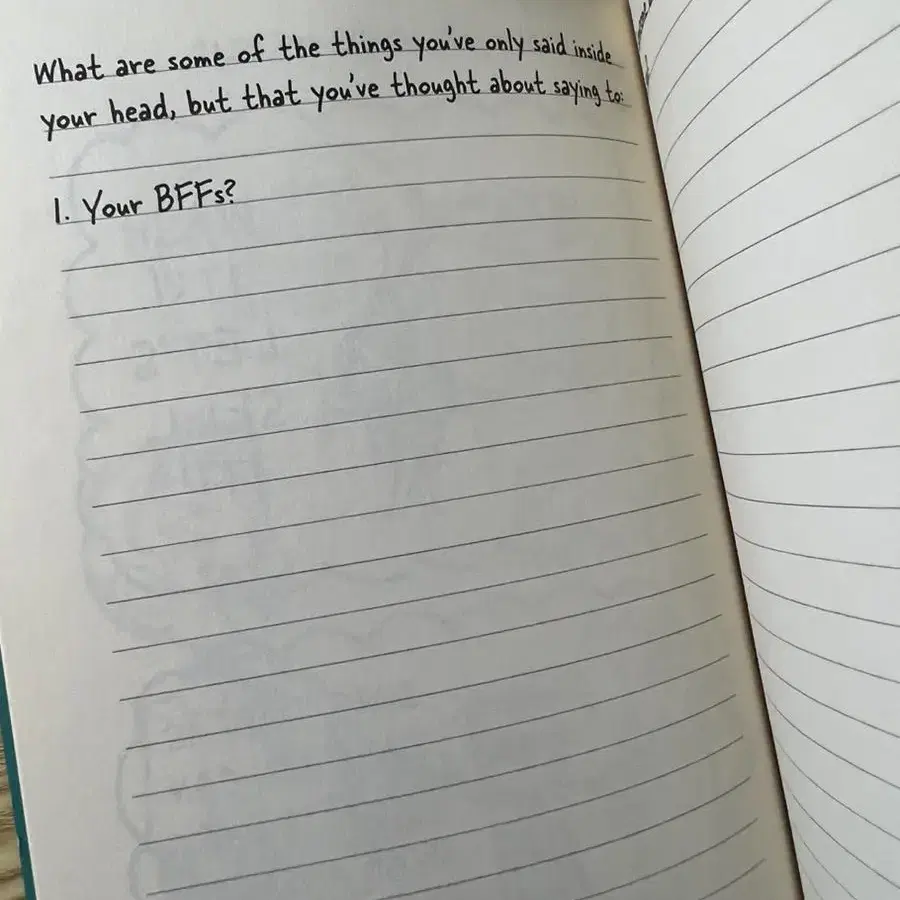 What are some of the things you've only said inside
your head, but that you've thought about saying to:
1. Your BFFs?